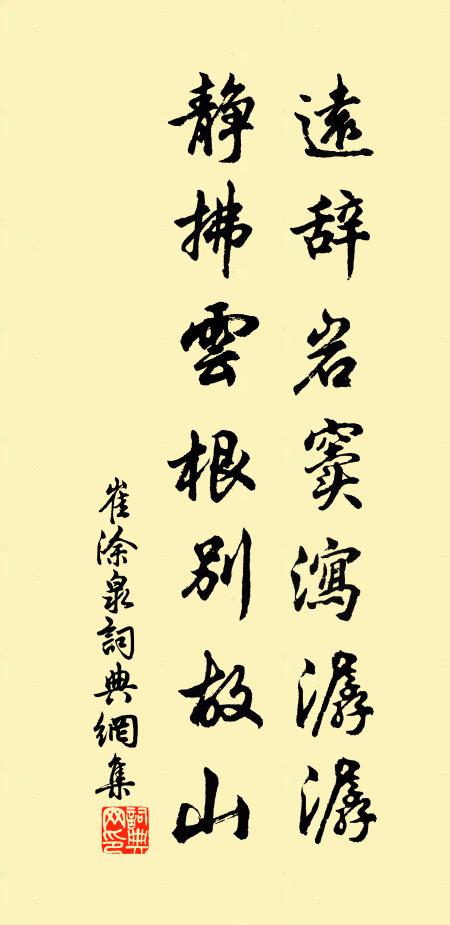 遠辞岩窦瀉潺潺
静拂雲根别故山
崔涂泉詞典網集
詞典网印